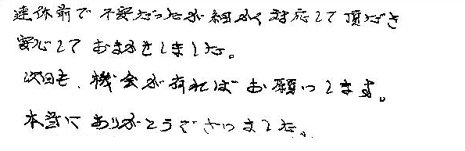 連休前で不安だったが細かく対応して頂だき
安心しておまかせしました。
次回も、機会が有ればお願いします。
本当にありがとうございました。